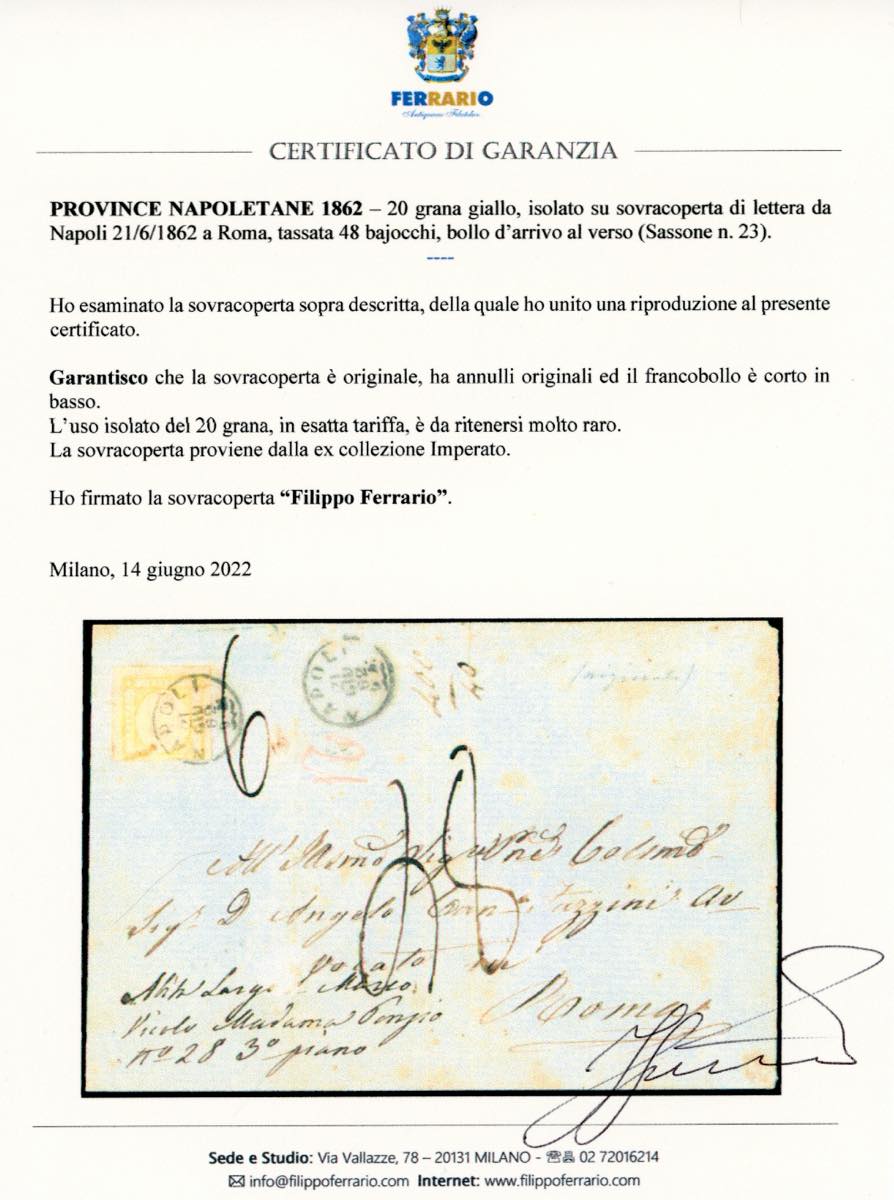 FERRARIO
Antiquario Filatelico
CERTIFICATO DI GARANZIA
PROVINCE NAPOLETANE 1862 – 20 grana giallo, isolato su sovracoperta di lettera da
Napoli 21/6/1862 a Roma, tassata 48 bajocchi, bollo d’arrivo al verso (Sassone n. 23).
----
Ho esaminato la sovracoperta sopra descritta, della quale ho unito una riproduzione al presente
certificato.
Garantisco che la sovracoperta è originale, ha annulli originali ed il francobollo è corto in
basso.
L’uso isolato del 20 grana, in esatta tariffa, è da ritenersi molto raro.
La sovracoperta proviene dalla ex collezione Imperato.
Ho firmato la sovracoperta “Filippo Ferrario”.
Milano, 14 giugno 2022
NAPOLI
21
GIU
62
NAPOLI
21
GIU
62
6
(originale)
Sigr D Angelo Av
vocato
Roma
Vicolo Madama
no 28 3o piano
Sede e Studio: Via Vallazze, 78 – 20131 MILANO - 02 72016214
info@filippoferrario.com Internet: www.filippoferrario.com